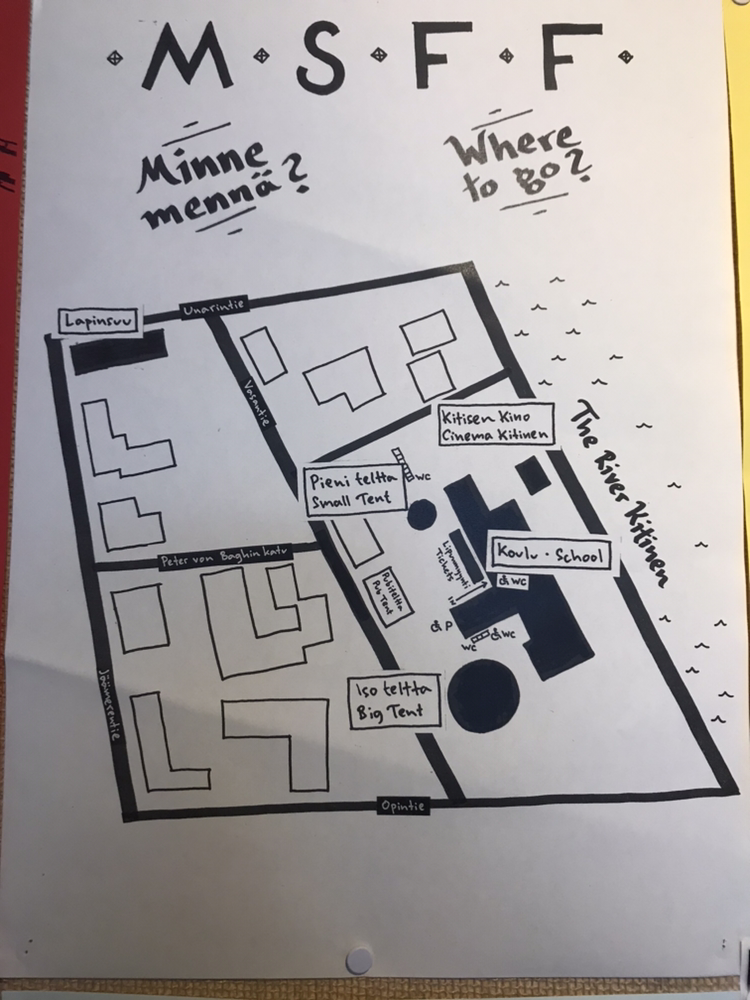 M S F F
Minne
mennä?
Where
to go?
Unarintie
Lapinsuu
Vasantie
Kitisen Kino
Cinema Kitinen
The River Kitinen
Pieni teltta
Small Tent
WC
Koulu · School
Lipunmyynti
Tickets
IN
WC
Peter von Baghin katu
Pubiteltta
Pub Tent
P
WC
WC
Jäämerentie
Iso teltta
Big Tent
Opintie